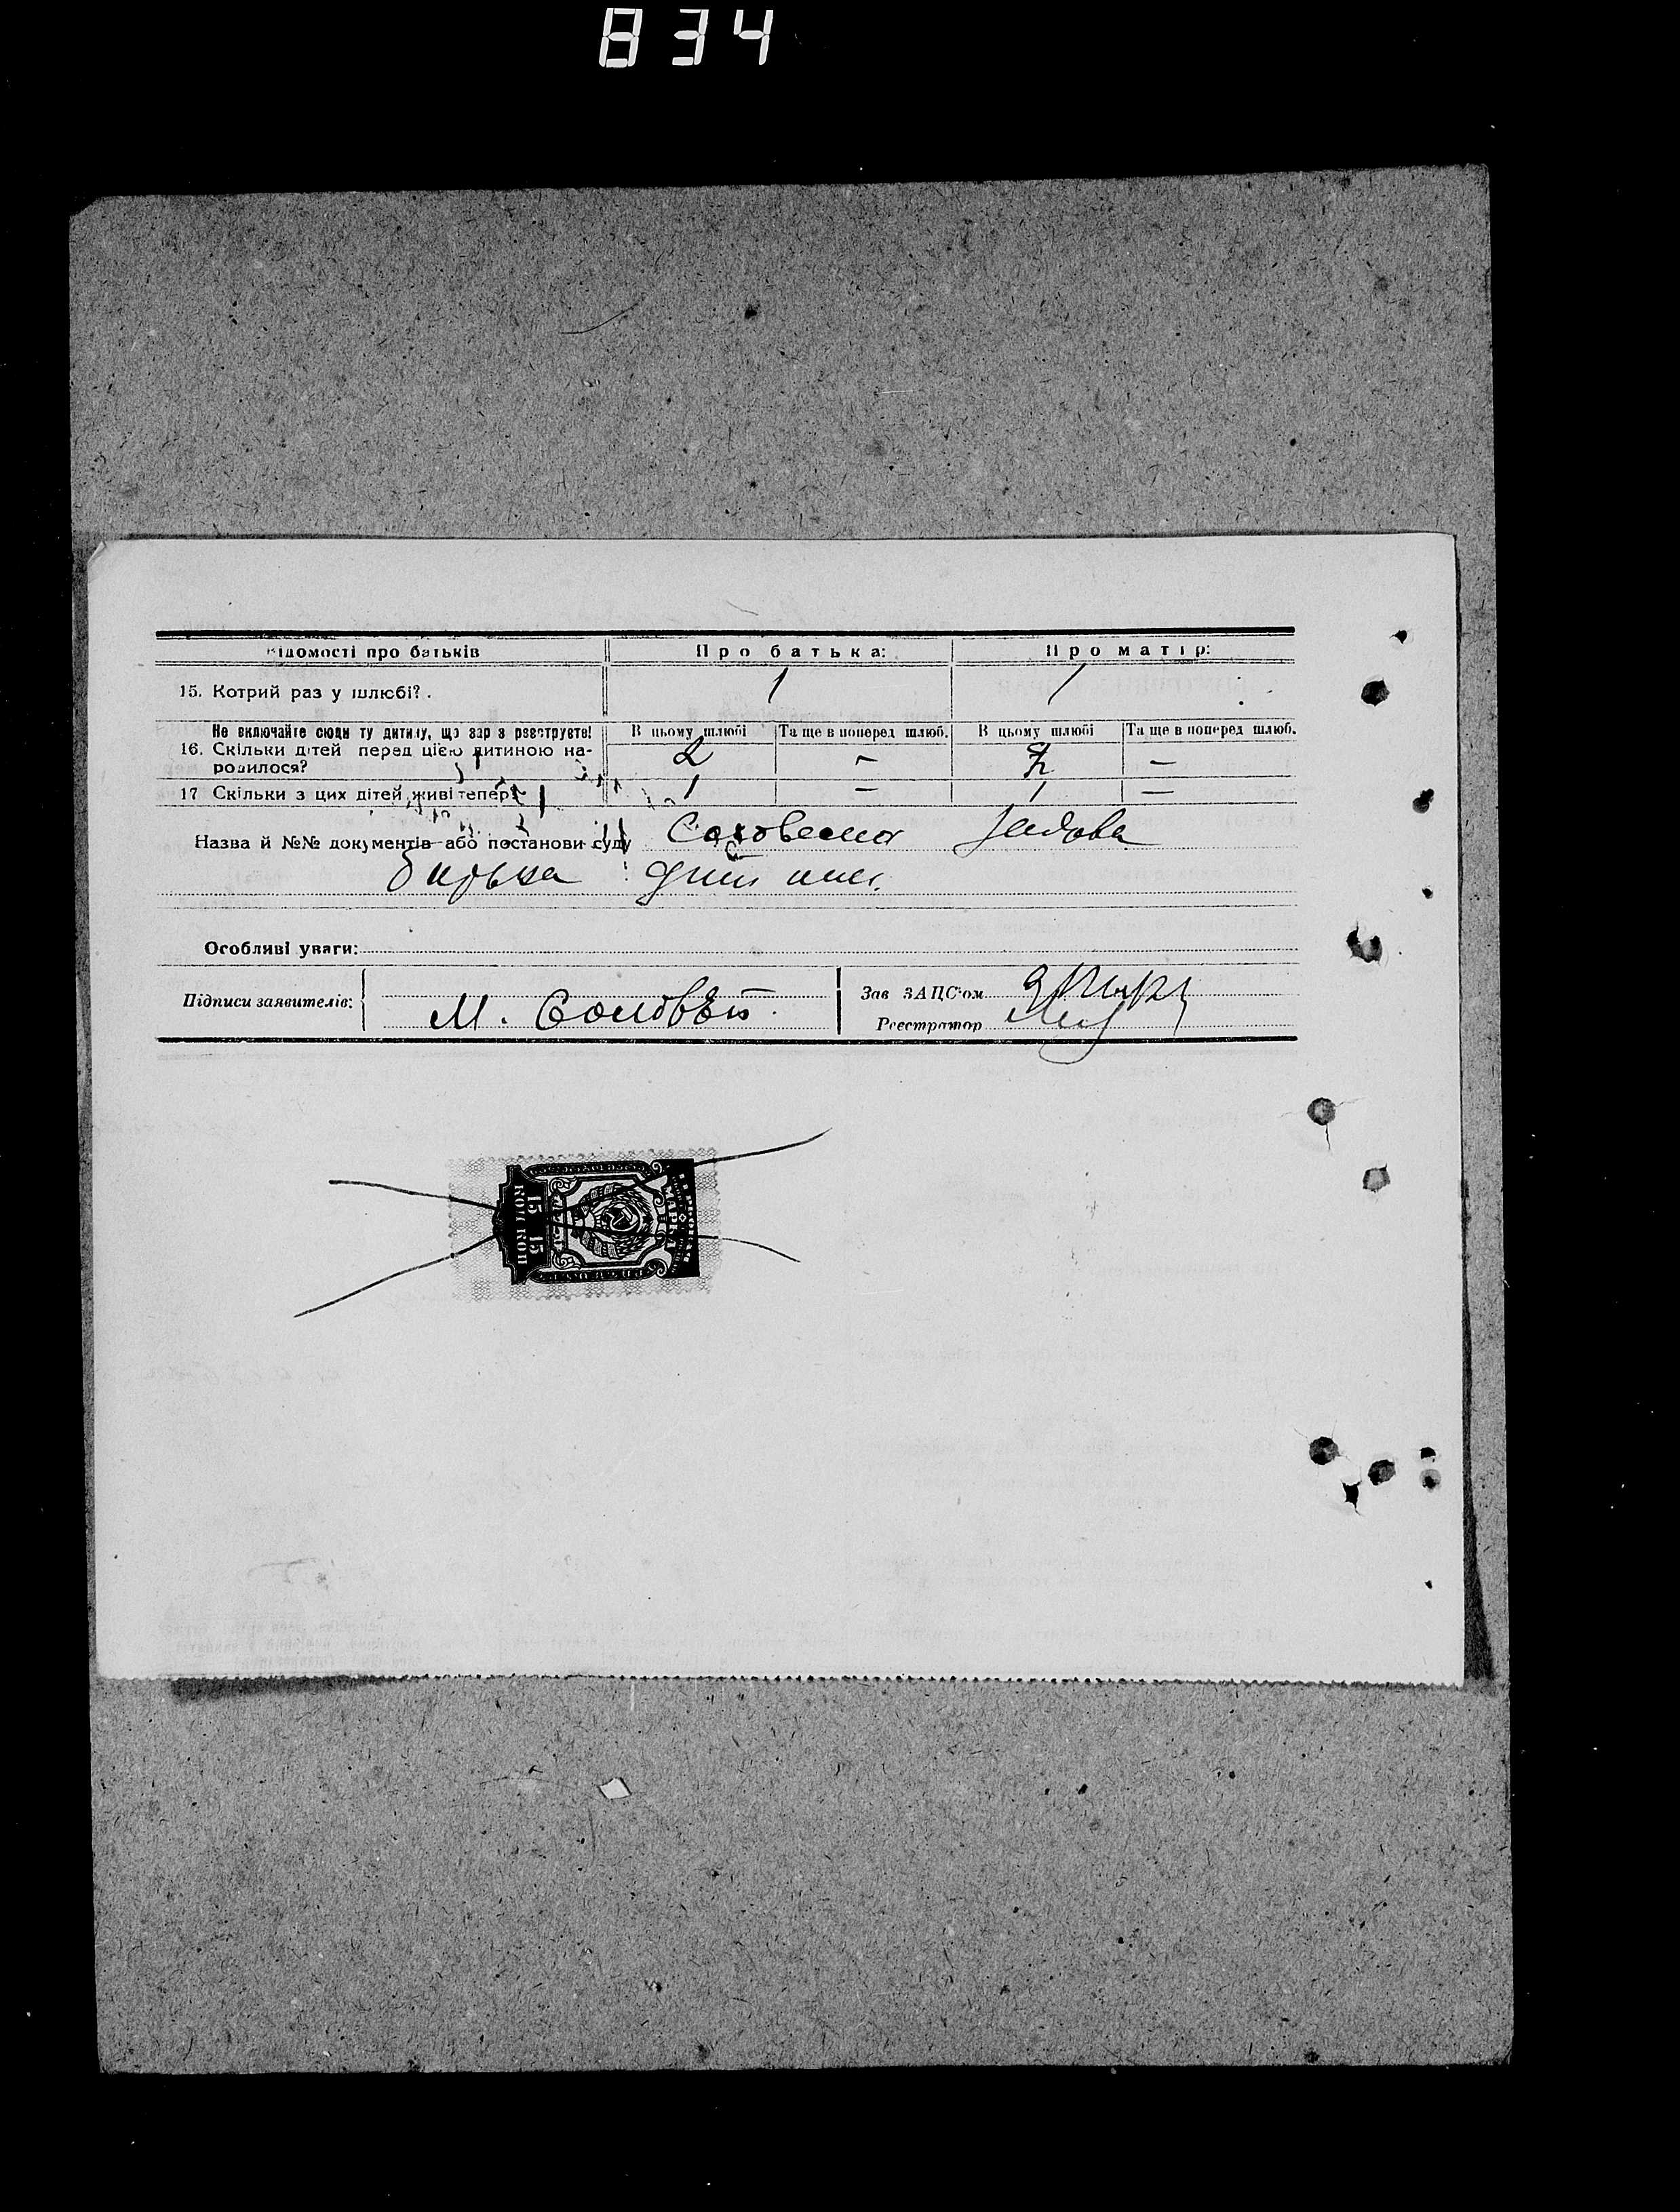 834
Відомості про батьків
Про батька:
Про матір:
15. Котрий раз у шлюбі?
1
1
Не включайте сюди ту дитину, що зараз реєструєте!
В цьому шлюбі
Та ще в поперед шлюб.
В цьому шлюбі
Та ще в поперед шлюб.
16. Скільки дітей перед цією дитиною на-
родилося?
2
–
2
–
17 Скільки з цих дітей живі тепер?
1
–
1
–
Назва й №№ документів або постанови суду
батька
Особливі уваги:
Підписи заявителів:
М.
Зав ЗАЦС'ом
Реєстратор
15 15
КОП КОП
МАРКА